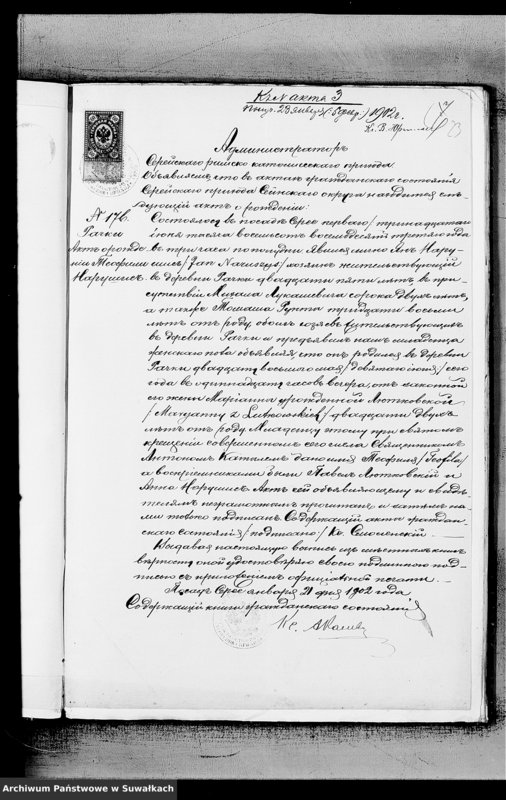 Къ № акта 3
Пос. 23 января (5 февр.) 1912 г.
Кс. В.
73
Администраторъ
Серейскаго римско католическаго прихода
Объявляетъ, что въ актахъ гражданскаго состоянія
Серейскаго прихода Сейнскаго округа находится слѣ
дующій актъ о рожденіи:
№ 176.
Рачки
Актъ о рожде-
ніи Теофили
Нарушисъ
Состоялось въ посадѣ Серее перваго / тринадцатаго
іюня тысяча восемьсотъ восемьдесятъ третьяго года
въ три часа по полудни. Явился лично Янъ Нару-
шисъ / Jan Naruszys / хозяинъ жительствующій
въ деревни Рачки двадцати пяти лѣтъ, въ при-
сутствіи Михаила Лукашевича сорока двухъ лѣтъ,
а также Томаша тридцати восьми
лѣтъ отъ роду, обоихъ хозяевъ жительствующихъ
въ деревни Рачки и предъявилъ намъ младенца
пола объявляя, что онъ родился въ деревни
Рачки двадцать восьмого мая / девятаго іюня / сего
года въ одиннадцать часовъ вечера, отъ законной
его жены Маріанны урожденной Лютковской
/ Maryanny z Lutkowskich / двадцати двухъ
лѣтъ отъ роду. Младенцу этому при святомъ
крещеніи совершенномъ сего числа Священникомъ
Антономъ дано имя Теофиля / Teofila /
а воспріемниками были Павелъ Лютковскій и
Анна Нарушисъ. Актъ сей объявляющему и свидѣ-
телямъ неграмотнымъ прочитанъ и затѣмъ на-
ми только подписанъ. Содержащій акты граждан
скаго состоянія / подписано: / Кс. Смоленскій. —
Выдавая настоящую выпись изъ
вѣрность оной удостовѣряю своею подлинною под-
писью съ приложеніемъ оффиціальной печати. —
Посадъ Серее января 21 дня 1902 года
Содержащій книги гражданскаго состоянія
Кс.
Archiwum Państwowe w Suwałkach